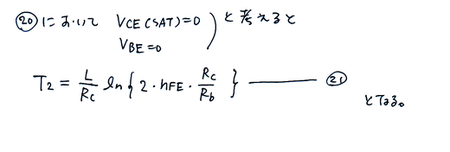 ⑳において VCE(SAT)=0
VBE=0 と考えると
T2 = L/Rc ln{2・hFE・Rc/Rb} ——— ㉑
となる。